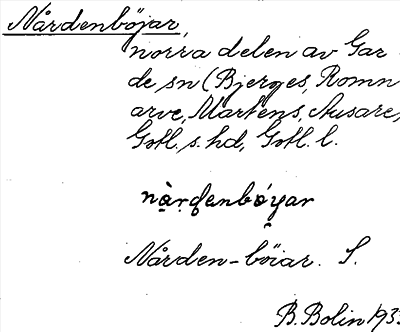 Nårdenböjar,
norra delen av Gar
de sn (Bjerges, Romn
arve, Martens, Ausare,
Gotl. s. hd, Gotl. l.
Nården-böiar. S.
B. Bolin 193